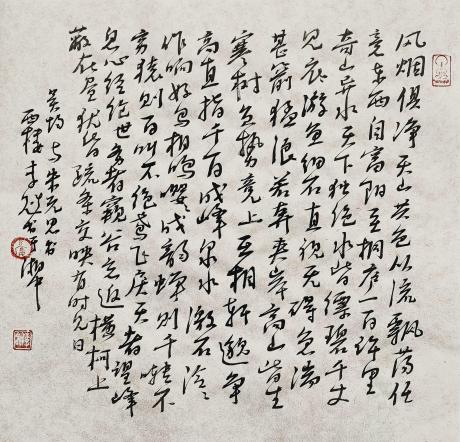 风烟俱净天山共色从流飘荡任
意东西自富阳至桐庐一百许里
奇山异水天下独绝水皆缥碧千丈
见底游鱼细石直视无碍急湍
甚箭猛浪若奔夹岸高山皆生
寒树负势竞上互相轩邈争
高直指千百成峰泉水激石泠々
作响好鸟相鸣嘤々成韵蝉则千啭不
穷猿则百叫不绝鸢飞戾天者望峰
息心经纶世务者窥谷忘返横柯上
蔽在昼犹昏疏条交映有时见日
吴均与朱元思书
李